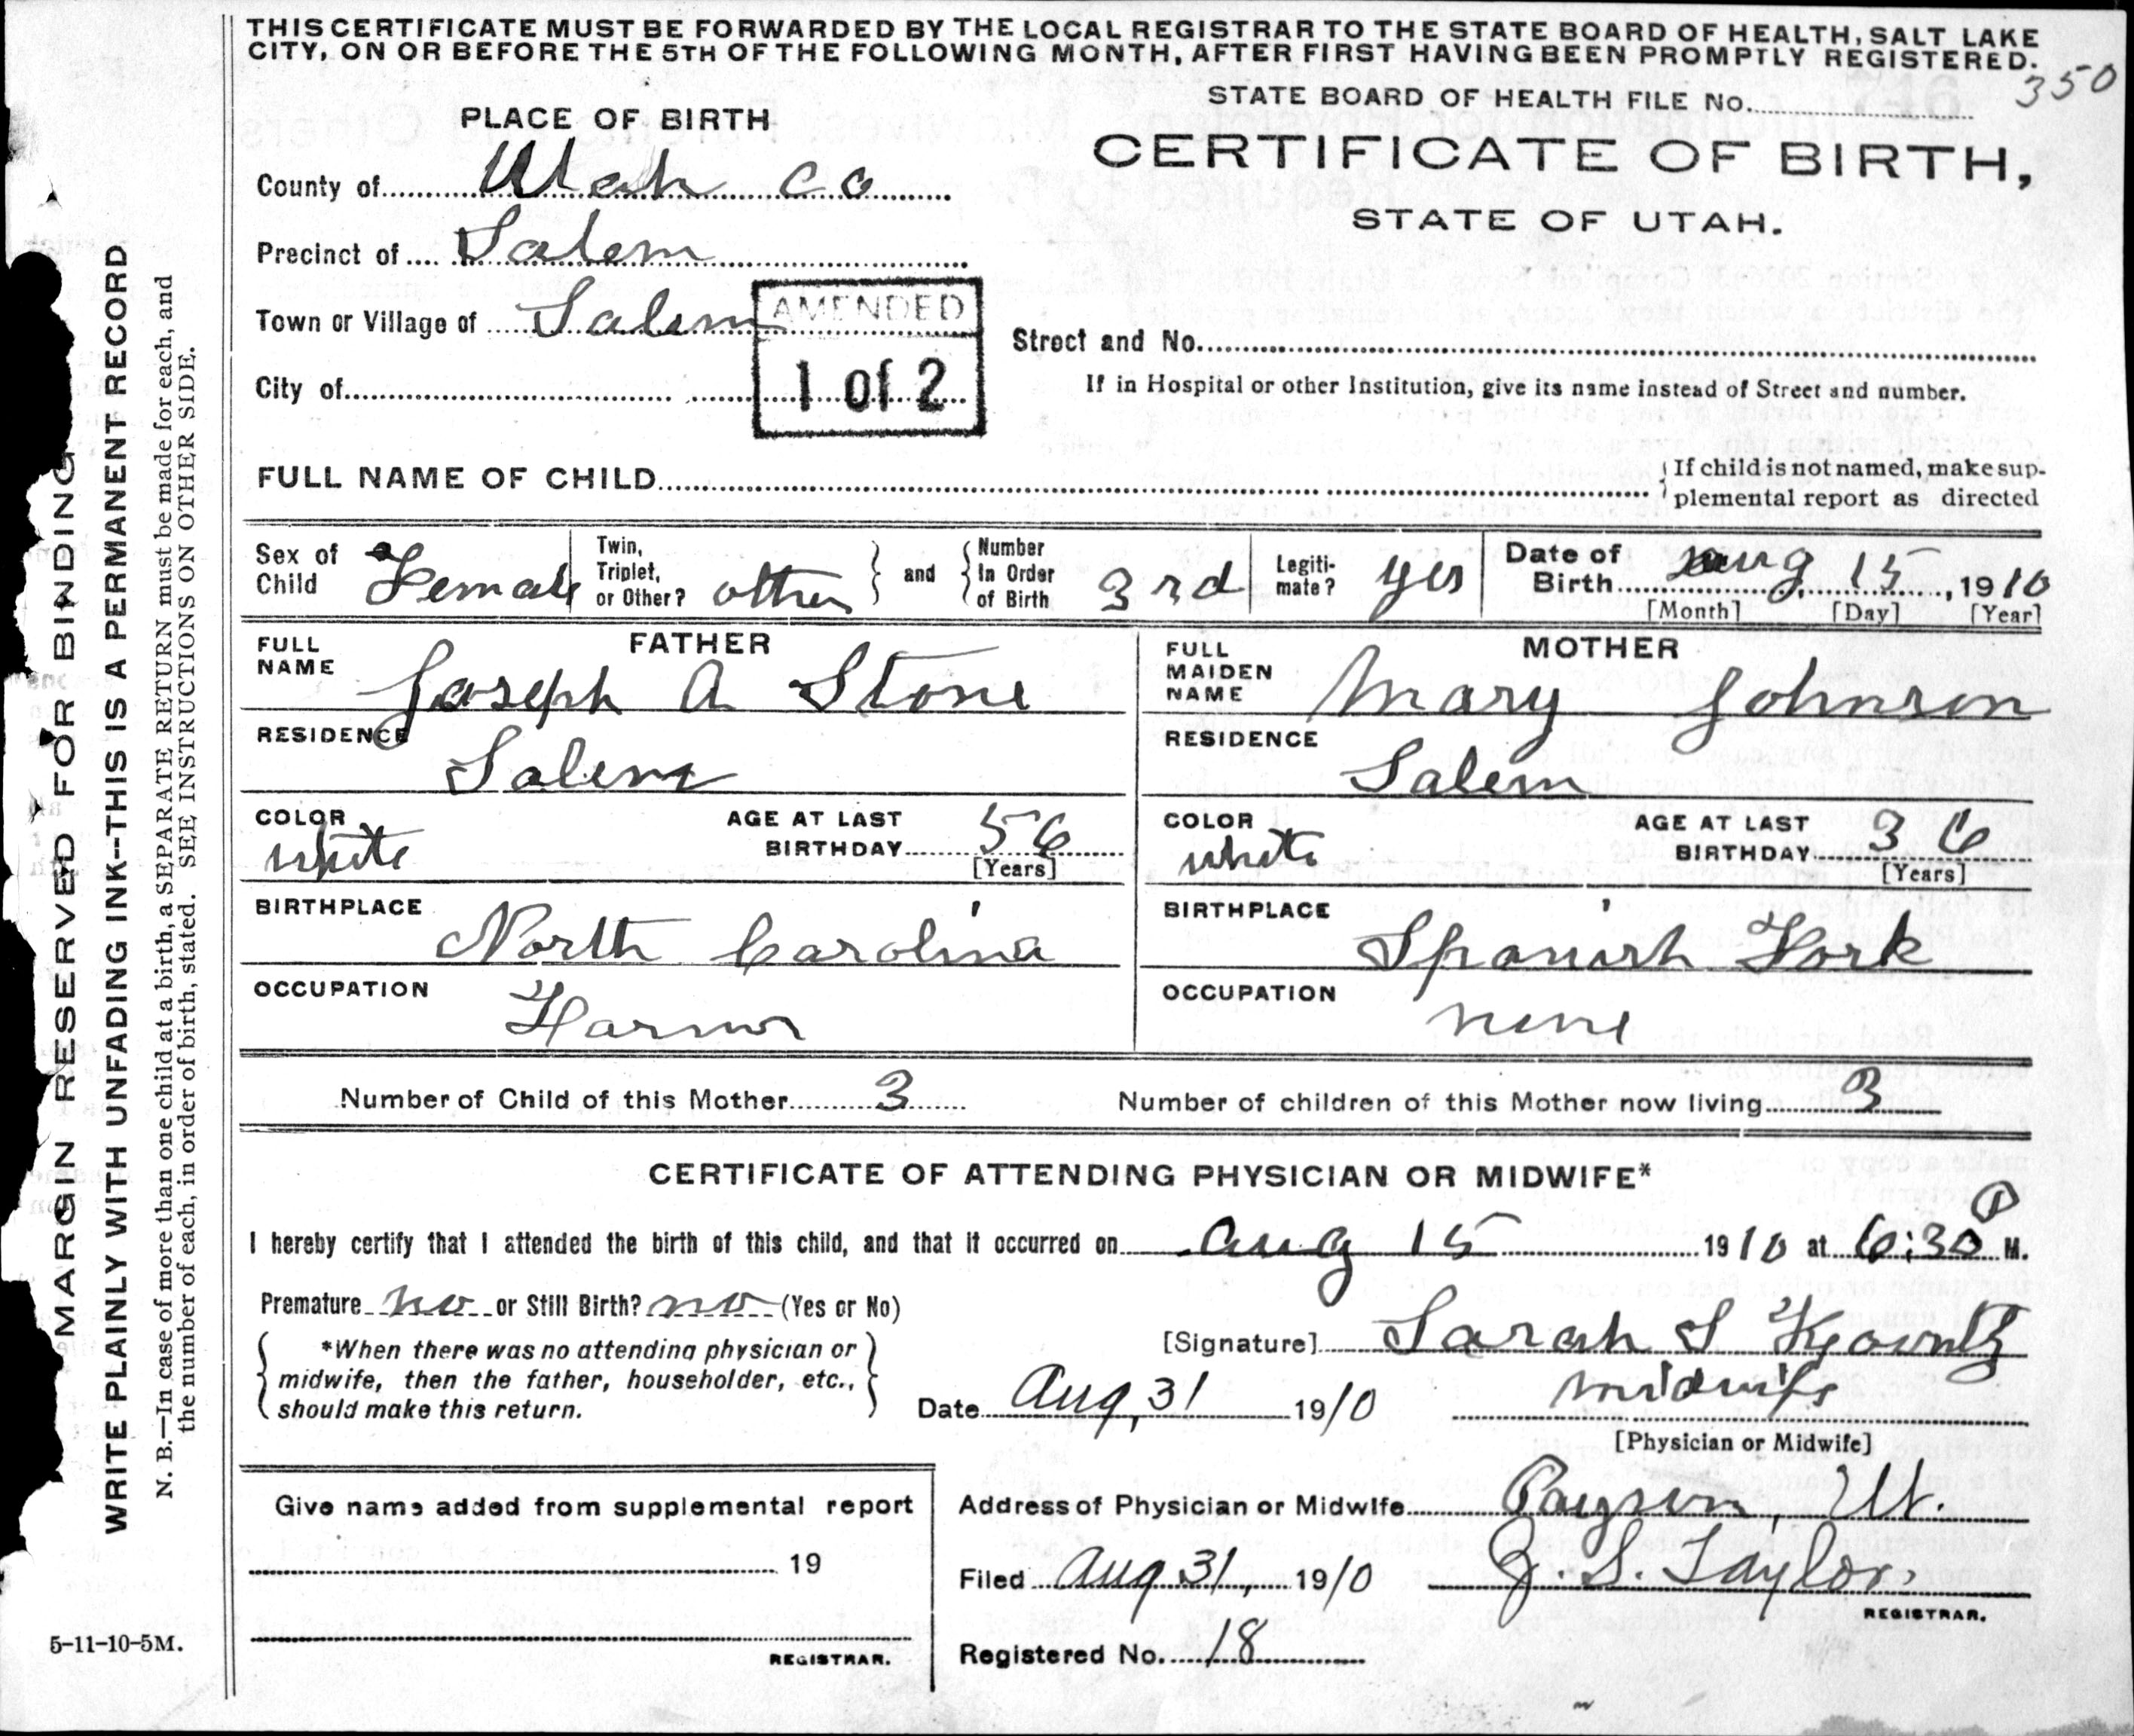 THIS CERTIFICATE MUST BE FORWARDED BY THE LOCAL REGISTRAR TO THE STATE BOARD OF HEALTH, SALT LAKE
CITY, ON OR BEFORE THE 5TH OF THE FOLLOWING MONTH, AFTER FIRST HAVING BEEN PROMPTLY REGISTERED.
350
STATE BOARD OF HEALTH FILE No.
PLACE OF BIRTH
CERTIFICATE OF BIRTH,
STATE OF UTAH.
County of Utah Co
Precinct of Salem
Town or Village of Salem
AMENDED
1 of 2
Street and No.
City of
If in Hospital or other Institution, give its name instead of Street and number.
FULL NAME OF CHILD
If child is not named, make sup-
plemental report as directed
Sex of Child Female
Twin, Triplet, or Other? other
and
Number In Order of Birth 3rd
Legiti-mate? yes
Date of Birth Aug 15, 1910
[Month] [Day] [Year]
FATHER
FULL NAME Joseph A Stone
RESIDENCE Salem
COLOR white
AGE AT LAST BIRTHDAY 56
[Years]
BIRTHPLACE North Carolina
OCCUPATION Farmer
MOTHER
FULL MAIDEN NAME Mary Johnson
RESIDENCE Salem
COLOR white
AGE AT LAST BIRTHDAY 36
[Years]
BIRTHPLACE Spanish Fork
OCCUPATION none
Number of Child of this Mother 3 Number of children of this Mother now living 3
CERTIFICATE OF ATTENDING PHYSICIAN OR MIDWIFE*
I hereby certify that I attended the birth of this child, and that it occurred on Aug 15 1910 at 6:30 P M.
Premature no or Still Birth? no (Yes or No)
*When there was no attending physician or
midwife, then the father, householder, etc.,
should make this return.
[Signature] Sarah S Koontz
Date Aug, 31 1910
midwife
[Physician or Midwife]
Give name added from supplemental report
19
REGISTRAR.
Address of Physician or Midwife Payson, Ut.
Filed Aug 31, 1910 J. S. Taylor.
REGISTRAR.
Registered No. 18
5-11-10-5M.
MARGIN RESERVED FOR BINDING
WRITE PLAINLY WITH UNFADING INK--THIS IS A PERMANENT RECORD
N. B.—In case of more than one child at a birth, a SEPARATE RETURN must be made for each, and
the number of each, in order of birth, stated. SEE INSTRUCTIONS ON OTHER SIDE.